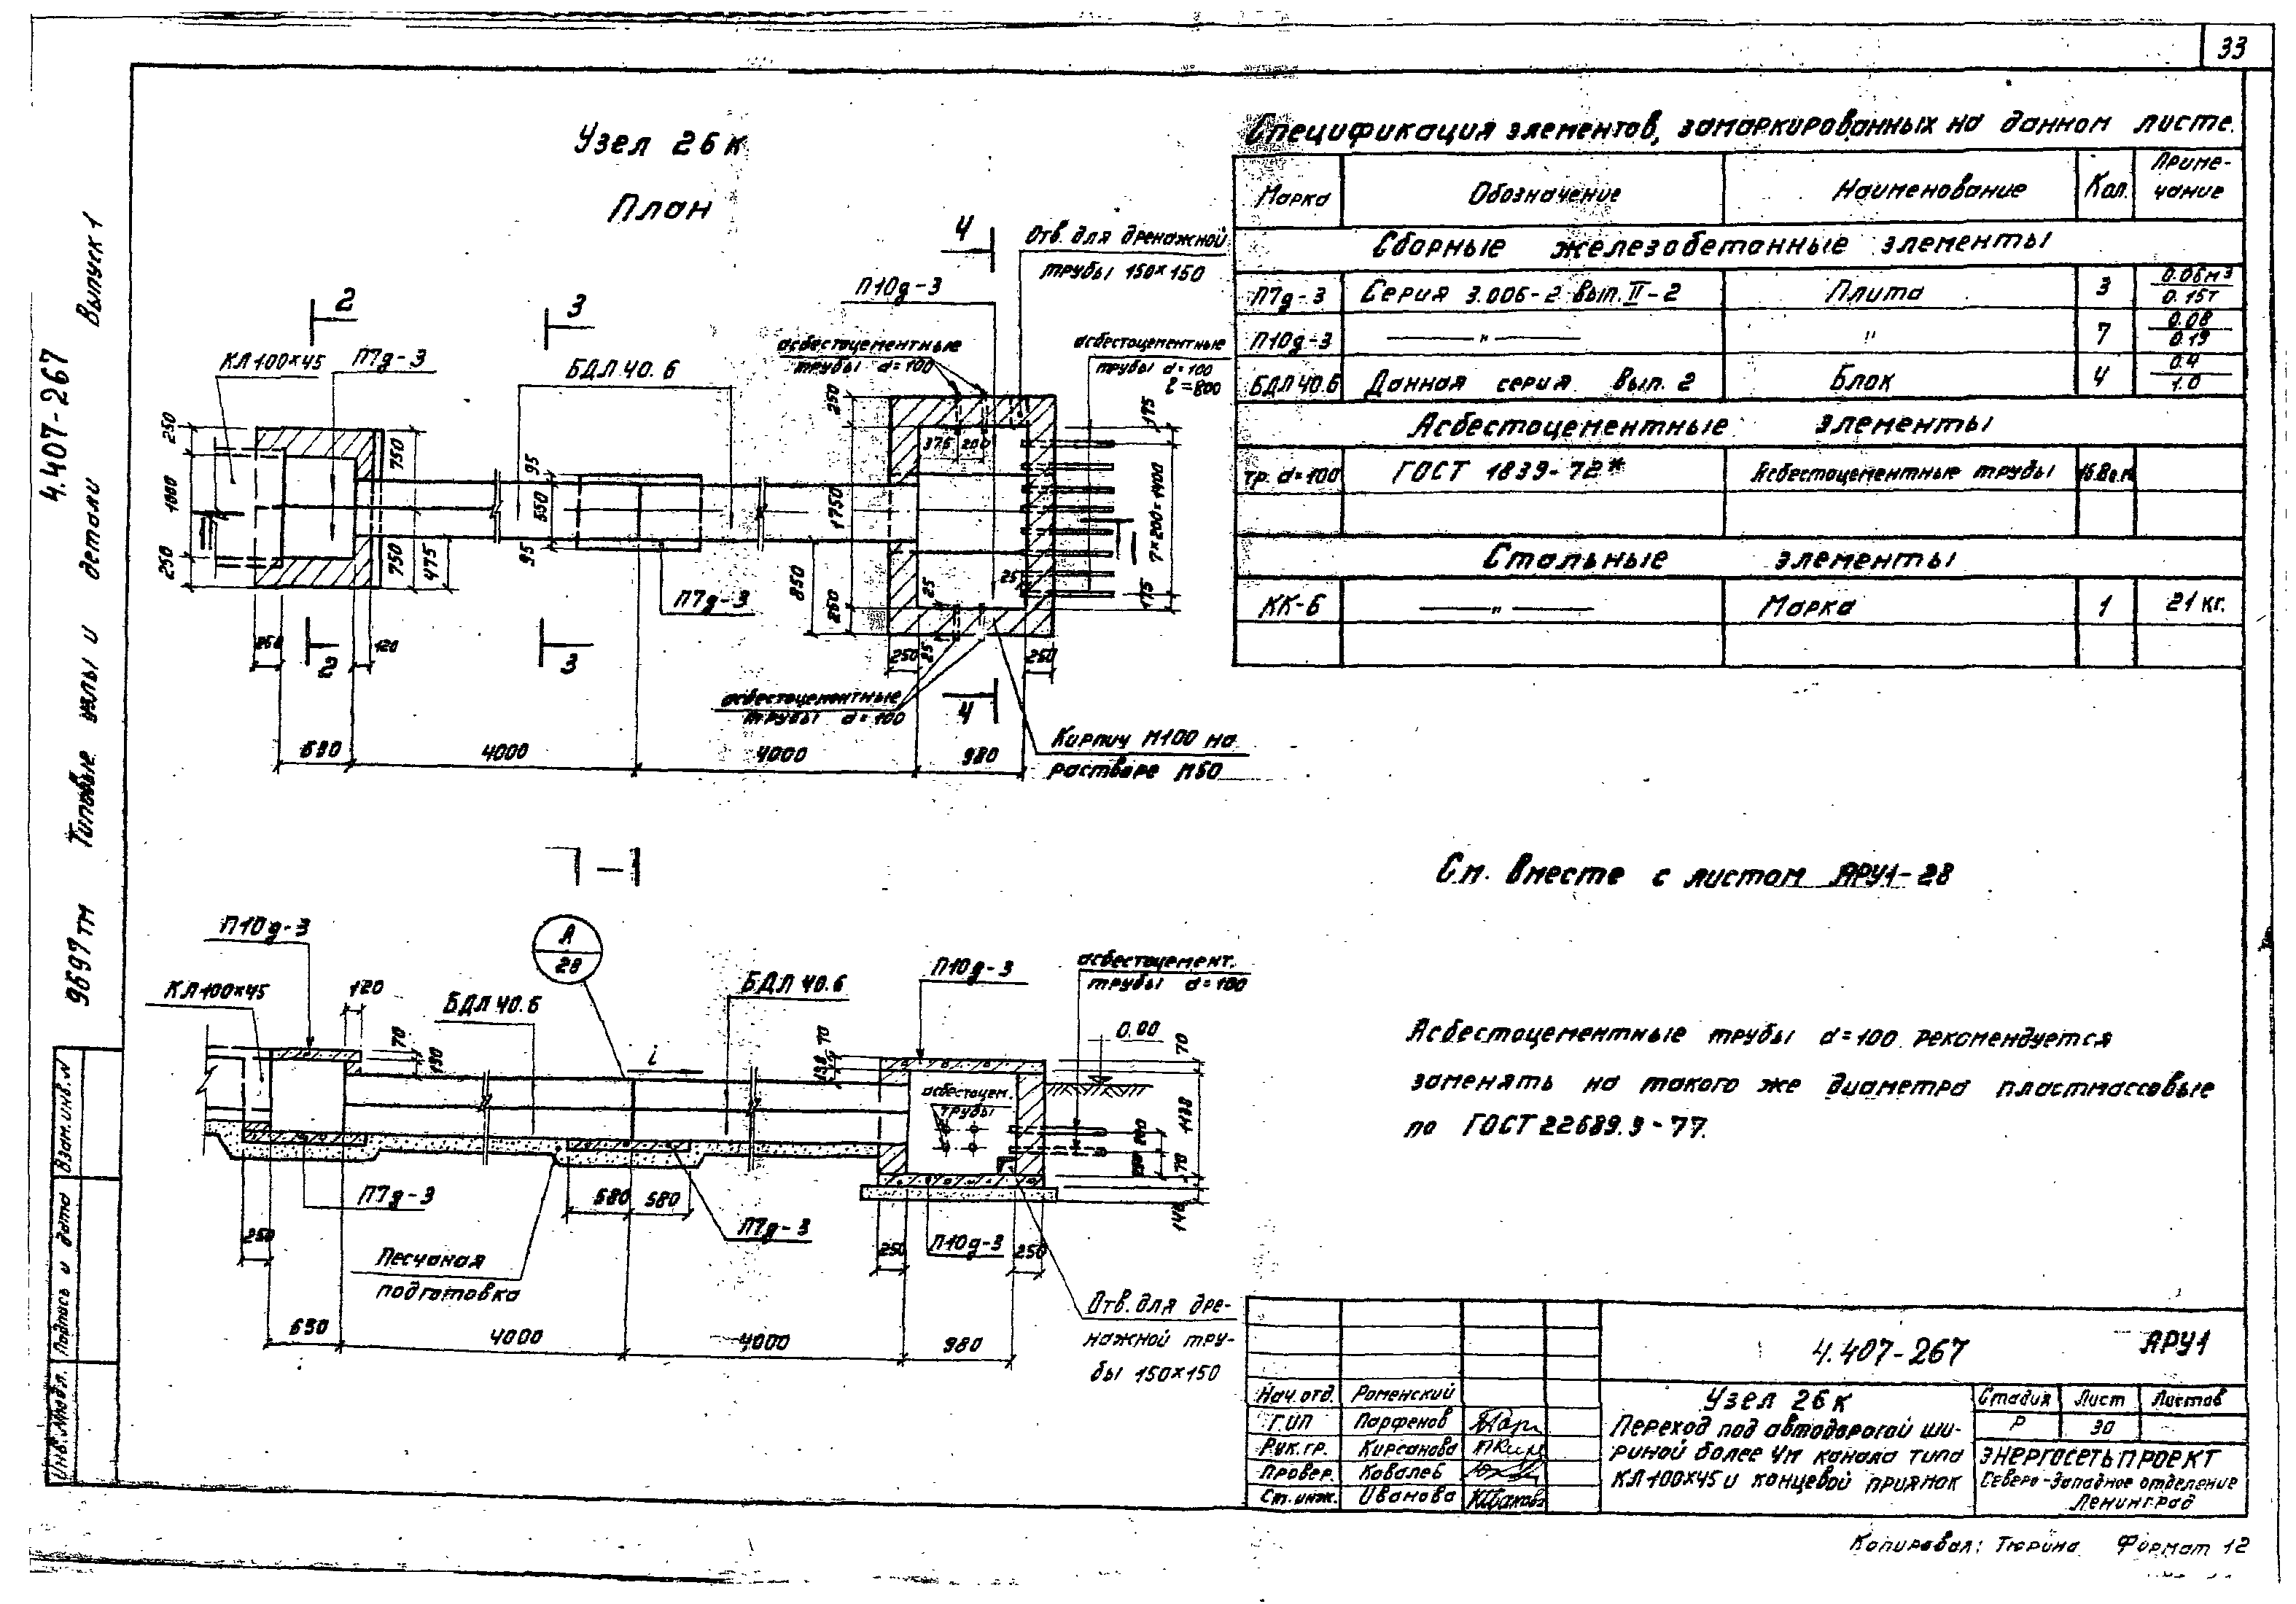 33
4.407-267 Выпуск 1
9697тм Типовые узлы и детали
Узел 26к
План
2
3
4
КЛ100×45
П7д-3
БДЛ 40.6
П10д-3
Отв. для дренажной
трубы 150×150
асбестоцементные
трубы d=100
асбестоцементные
трубы d=100
ℓ=800
250
1000
250
750
750
475
95
550
95
250
1750
250
850
375
200
25
25
25
175
7×200=1400
175
П7д-3
250
2
120
3
250
250
4
асбестоцементные
трубы d=100
Кирпич М100 на
растворе М50
630
4000
4000
980
1-1
П10д-3
КЛ100×45
120
70
БДЛ 40.6
А
28
i
БДЛ 40.6
70
П10д-3
асбестоцемент.
трубы d=100
0.00
70
асбестоцем.
трубы
200
70
П7д-3
580
П7д-3
250
Песчаная
подготовка
250
П10д-3
250
Отв. для дре-
нажной тру-
бы 150×150
630
4000
4000
980
Спецификация элементов, замаркированных на данном листе.
Марка Обозначение Наименование Кол. Приме-
чание
Сборные железобетонные элементы
П7д-3 Серия 3.006-2 вып. II-2 Плита 3 0.06м³
0.15т
П10д-3 —"— " 7 0.08
0.19
БДЛ 40.6 Данная серия вып. 2 Блок 4 0.4
1.0
Асбестоцементные элементы
тр. d=100 ГОСТ 1839-72* Асбестоцементные трубы
Стальные элементы
КК-6 —"— Марка 1 21 кг.
См. вместе с листом АРУ1-28
Асбестоцементные трубы d=100 рекомендуется
заменять на такого же диаметра пластмассовые
по ГОСТ 22689.3-77.
Взам. инв. N
Подпись и дата
Инв. N подл.
4.407-267 АРУ1
Нач. отд. Роменский
ГИП Парфенов
Рук. гр. Кирсанова
Провер. Ковалев
Ст. инж. Иванова
Узел 26к
Переход под автодорогой ши-
риной более 4м канала типа
КЛ100×45 и концевой приямок
Стадия Лист Листов
Р 30
ЭНЕРГОСЕТЬПРОЕКТ
Северо-Западное отделение
Ленинград
Копировал: Тюрина Формат 12